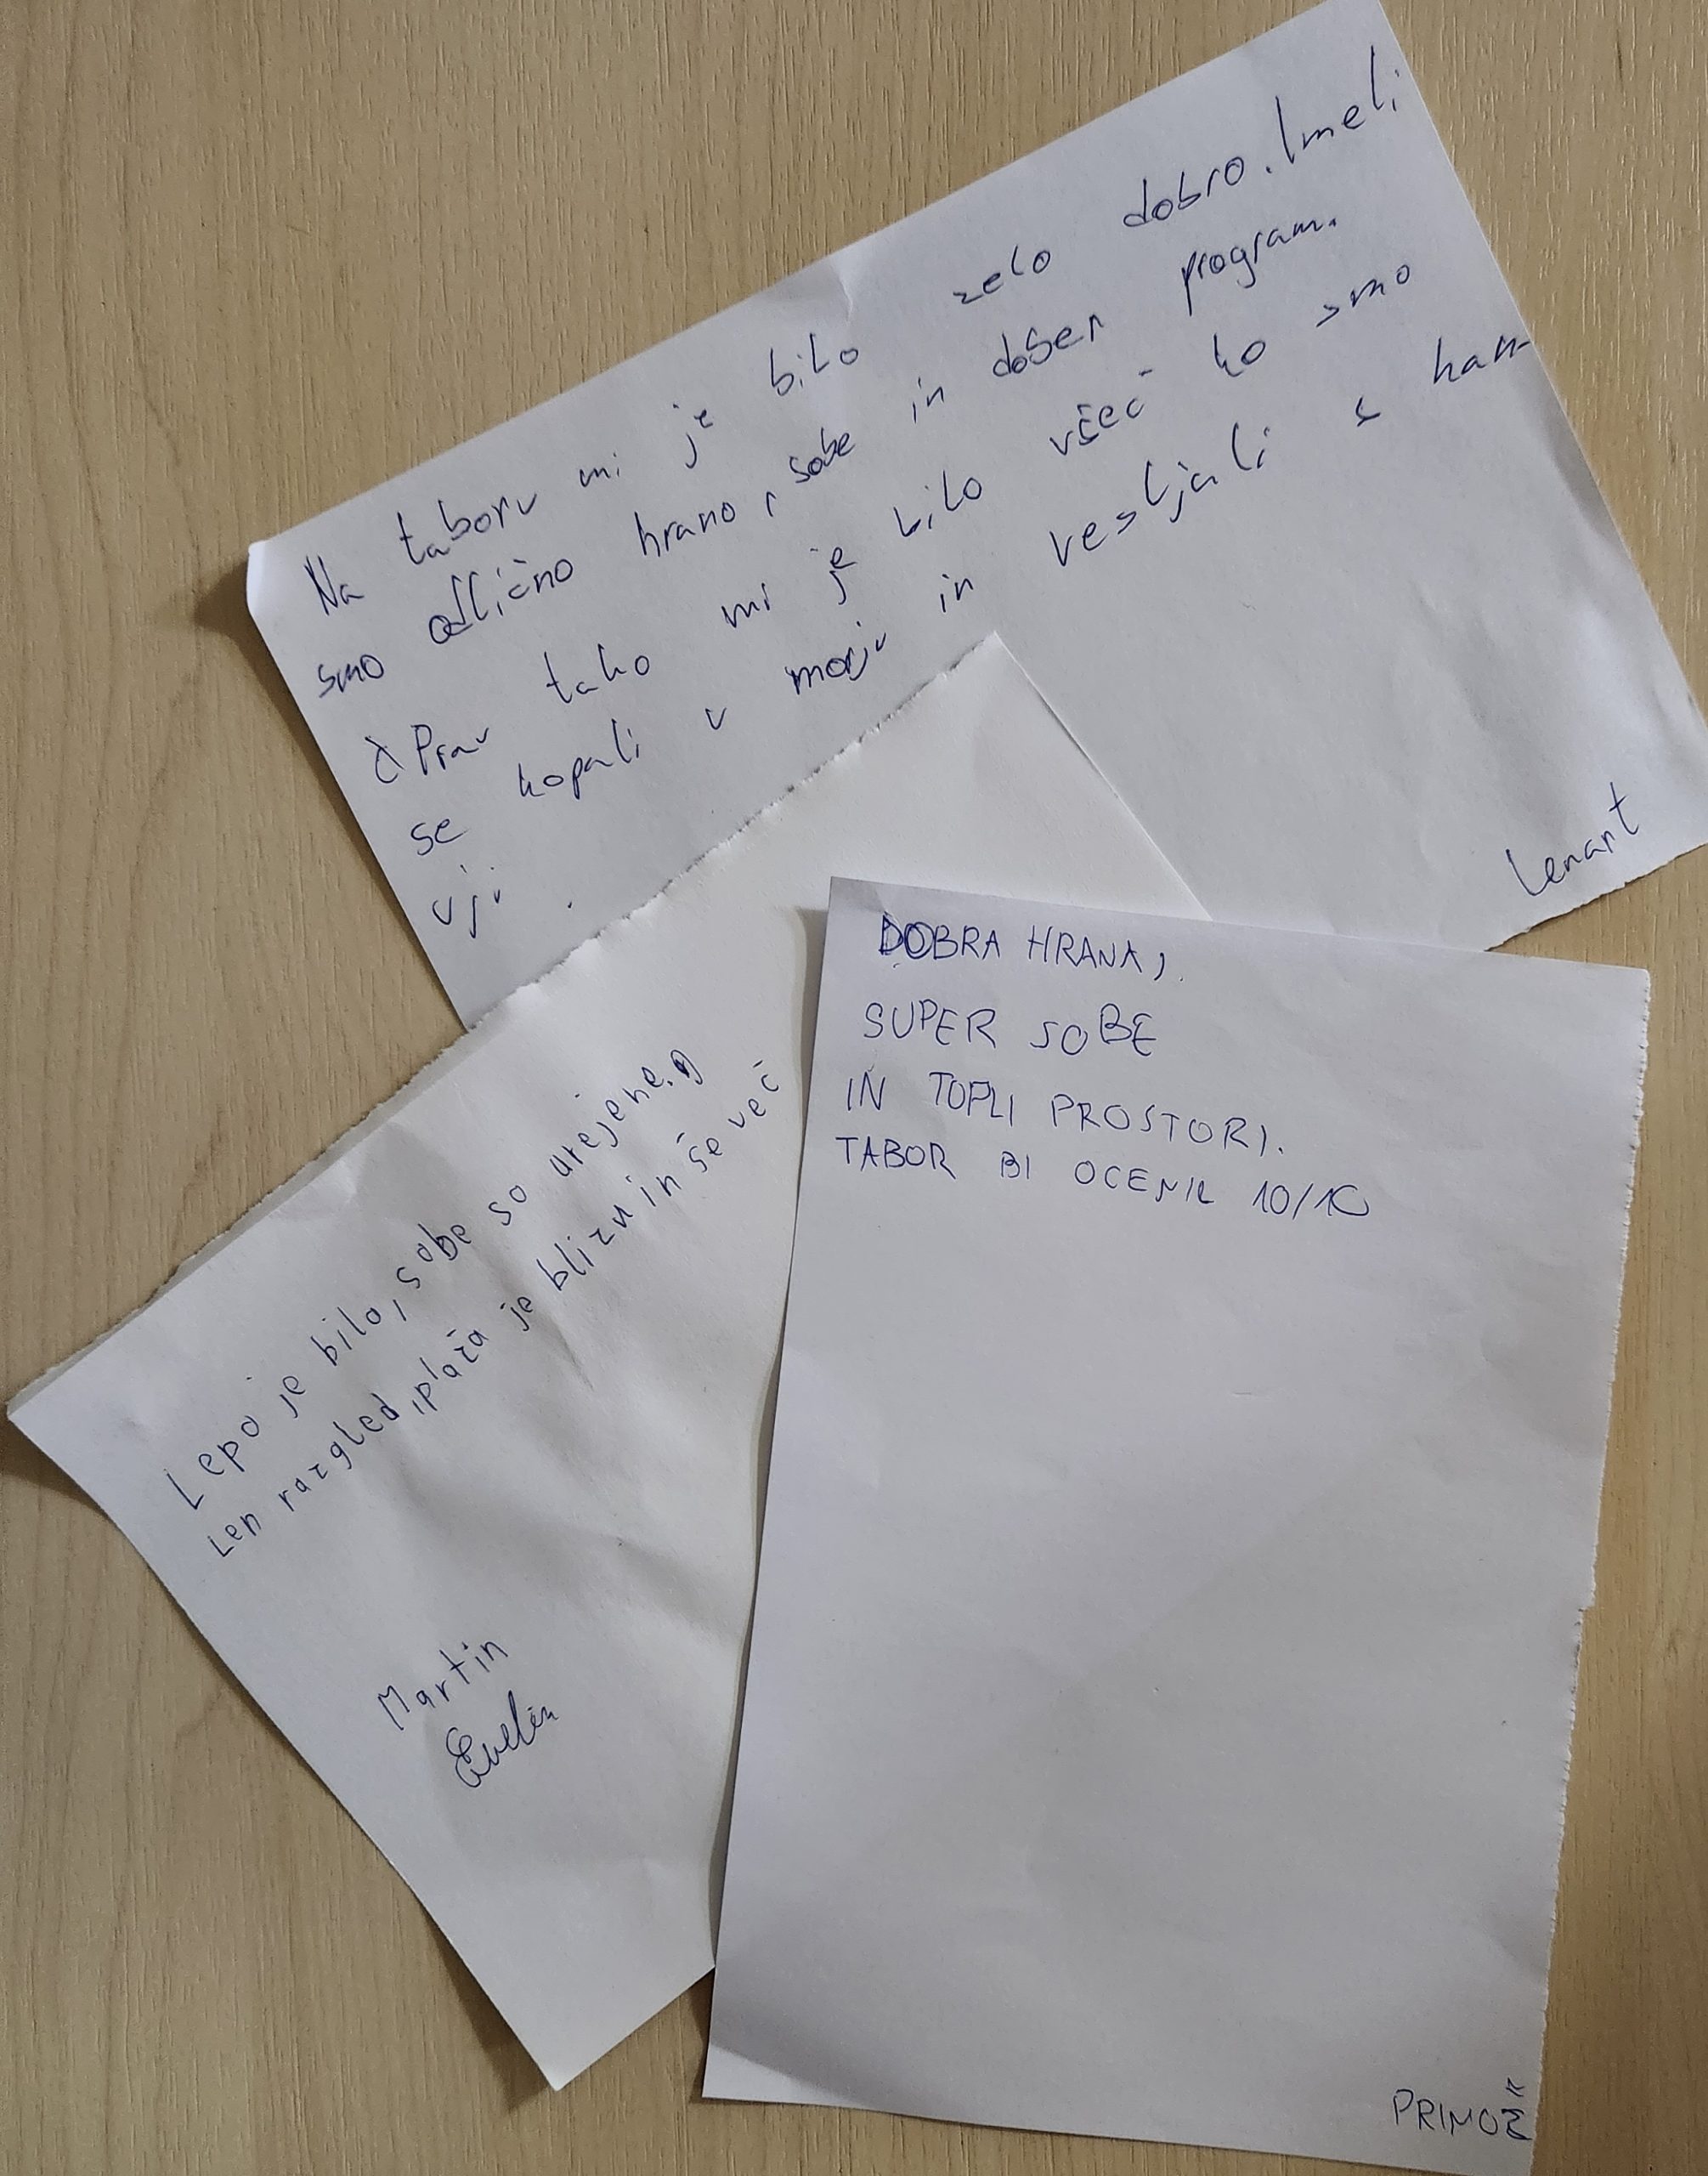 Na taboru mi je bilo zelo dobro. Imeli
smo odlično hrano, sobe in dober program.
Prav tako mi je bilo všeč ko smo
se kopali v morju in vesljali s kan-
uji.
Lenart
Lepo je bilo, sobe so urejene.
Lep razgled, plaža je blizu in še več
Martin
Evelin
DOBRA HRANA,
SUPER SOBE
IN TOPLI PROSTORI.
TABOR BI OCENIL 10/10
PRIMOŽ